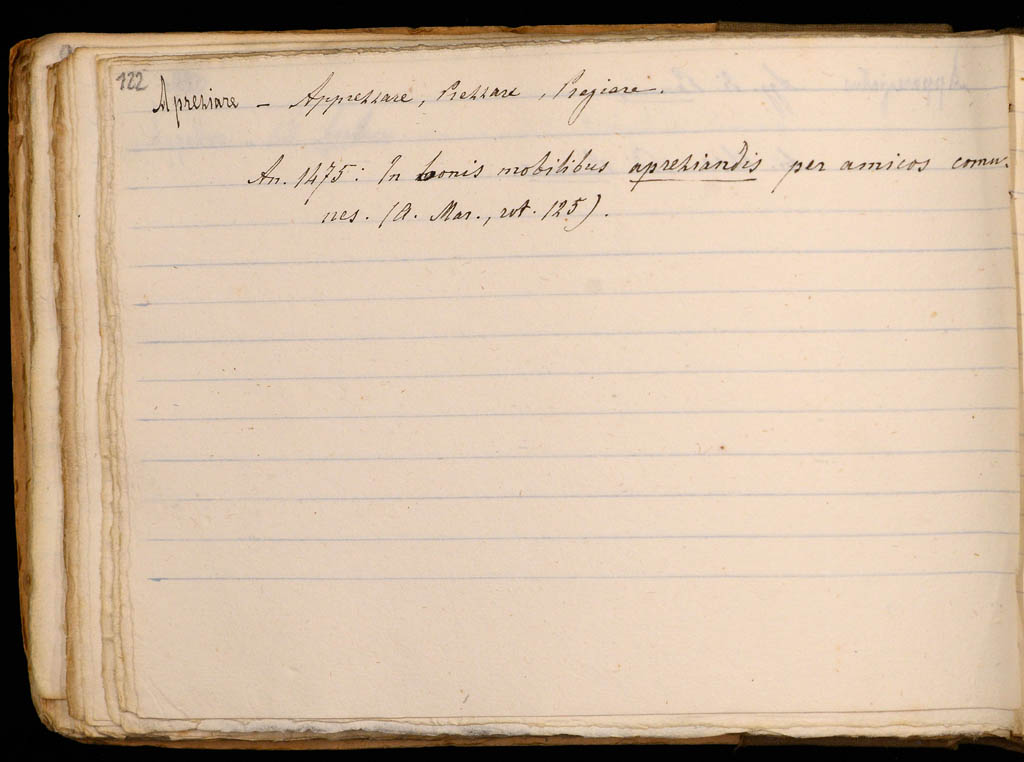 122
Apreziare – Apprezzare, Prezzare, Pregiare.
An. 1475: In bonis mobilibus apreziandis per amicos comu-
nes. (A. Mar., rot. 125).